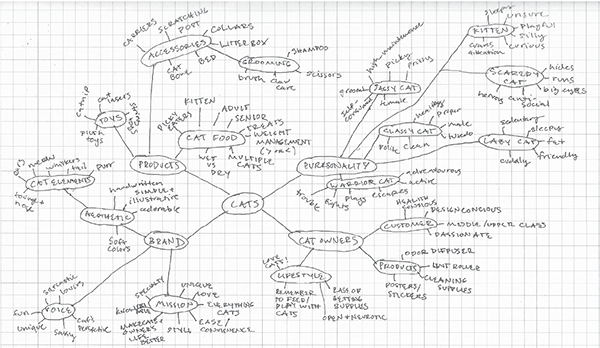 CARRIERS
SCRATCHING
POST
COLLARS
LITTERBOX
BED
CAT
ACCESSORIES
GROOMING
SHAMPOO
SCISSORS
brush
claw
care
sleepy
unsure
playful
silly
curious
KITTEN
high maintenance
picky
prissy
female
SASSY CAT
SCAREDY CAT
hides
runs
big eyes
nervous
anti-
social
CLASSY CAT
proper
male
tuxedo
clean
polite
LAZY CAT
sedentary
sleepy
fat
friendly
cuddly
catnip
TOYS
plush
toys
KITTEN
ADULT
SENIOR
TREATS
WEIGHT
MANAGEMENT
MULTIPLE
CATS
WET
VS
DRY
PICKY
EATERS
CAT FOOD
PRODUCTS
PURRSONALITY
WARRIOR CAT
adventurous
active
escapes
plays
fights
trouble
meow
whiskers
tail
purr
CAT ELEMENTS
nose
AESTHETIC
handwritten
SIMPLE +
illustrative
adorable
soft
colors
CATS
BRAND
CAT OWNERS
HEALTH
CONSCIOUS
DESIGN CONSCIOUS
MIDDLE/UPPER CLASS
PASSIONATE
CUSTOMER
PRODUCTS
ODOR DIFFUSER
LINT ROLLER
CLEANING
SUPPLIES
POSTERS/
STICKERS
LOVE
CATS!
LIFESTYLE
REMEMBER
TO FEED/
PLAY WITH
CATS
EASE OF
GETTING
SUPPLIES
OPEN + NEUROTIC
MISSION
SPECIALTY
UNIQUE
LOVE
EVERYTHING
CATS
EASE/
CONVENIENCE
STYLE
MAKE CATS +
OWNERS
LIFE
BETTER
VOICE
sarcastic
fun
unique
sassy
cat's
perspective